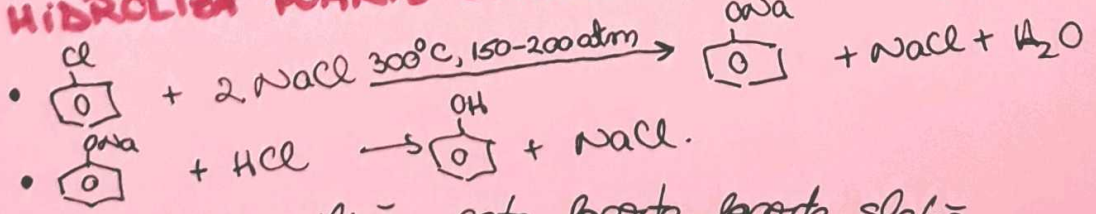 HIDROLIZA
• Cl + 2 NaCl 300°C, 150-200 atm → ONa + NaCl + H₂O
• ONa + HCl → OH + NaCl.